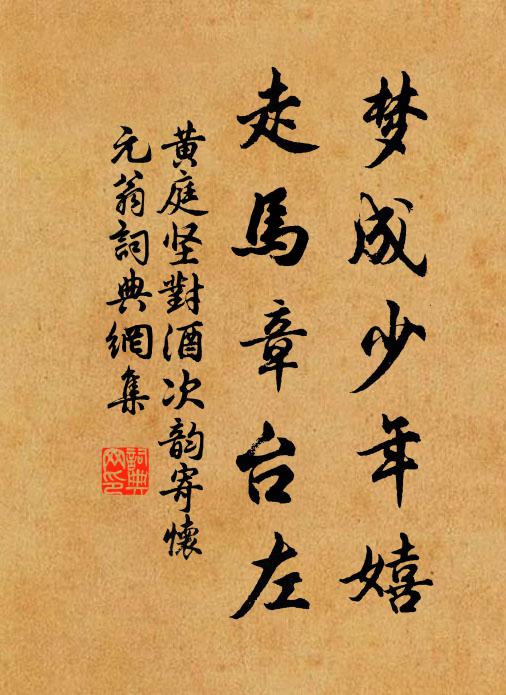 梦成少年嬉
走馬章台左
黄庭坚對酒次韵寄懷
元翁詞典網集
詞典網印